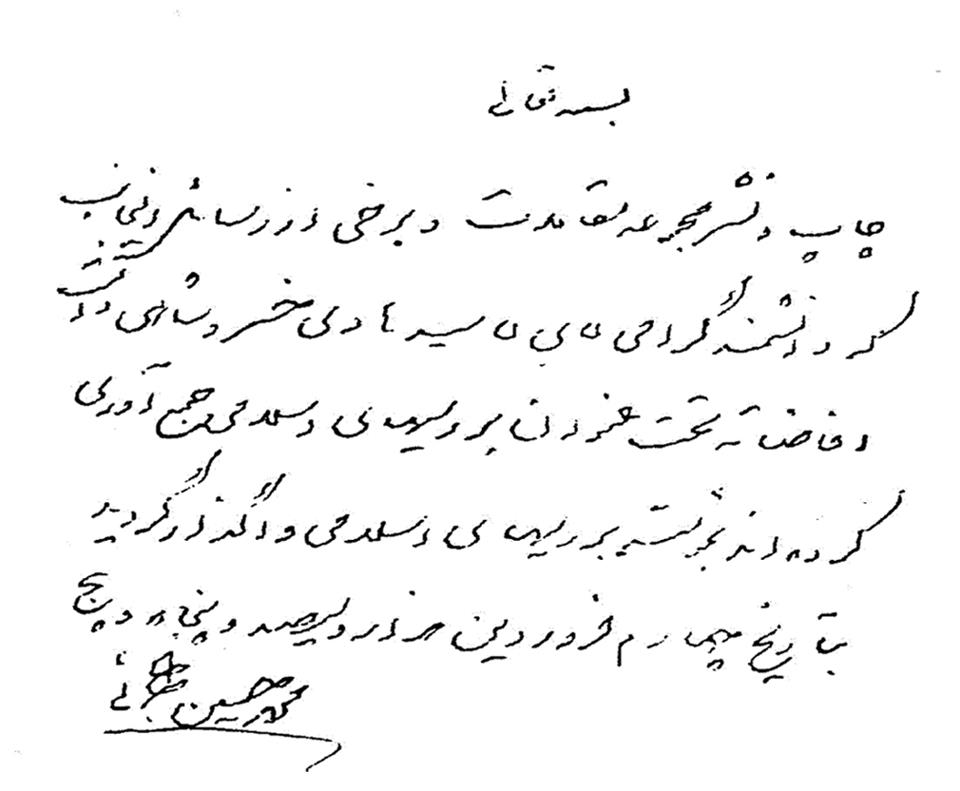 بسمه تعالی
چاپ و نشر مجموعه مقالات و برخی از رسائل اینجانب
که دانشمند گرامی آقای آقا سید هادی خسروشاهی دامت
افاضاته تحت عنوان بررسیهای اسلامی جمع آوری
کرده اند به نشر بررسیهای اسلامی واگذار گردید
بتاریخ چهارم فروردین هزار و سیصد و پنجاه و پنج
محمد حسین طباطبائی